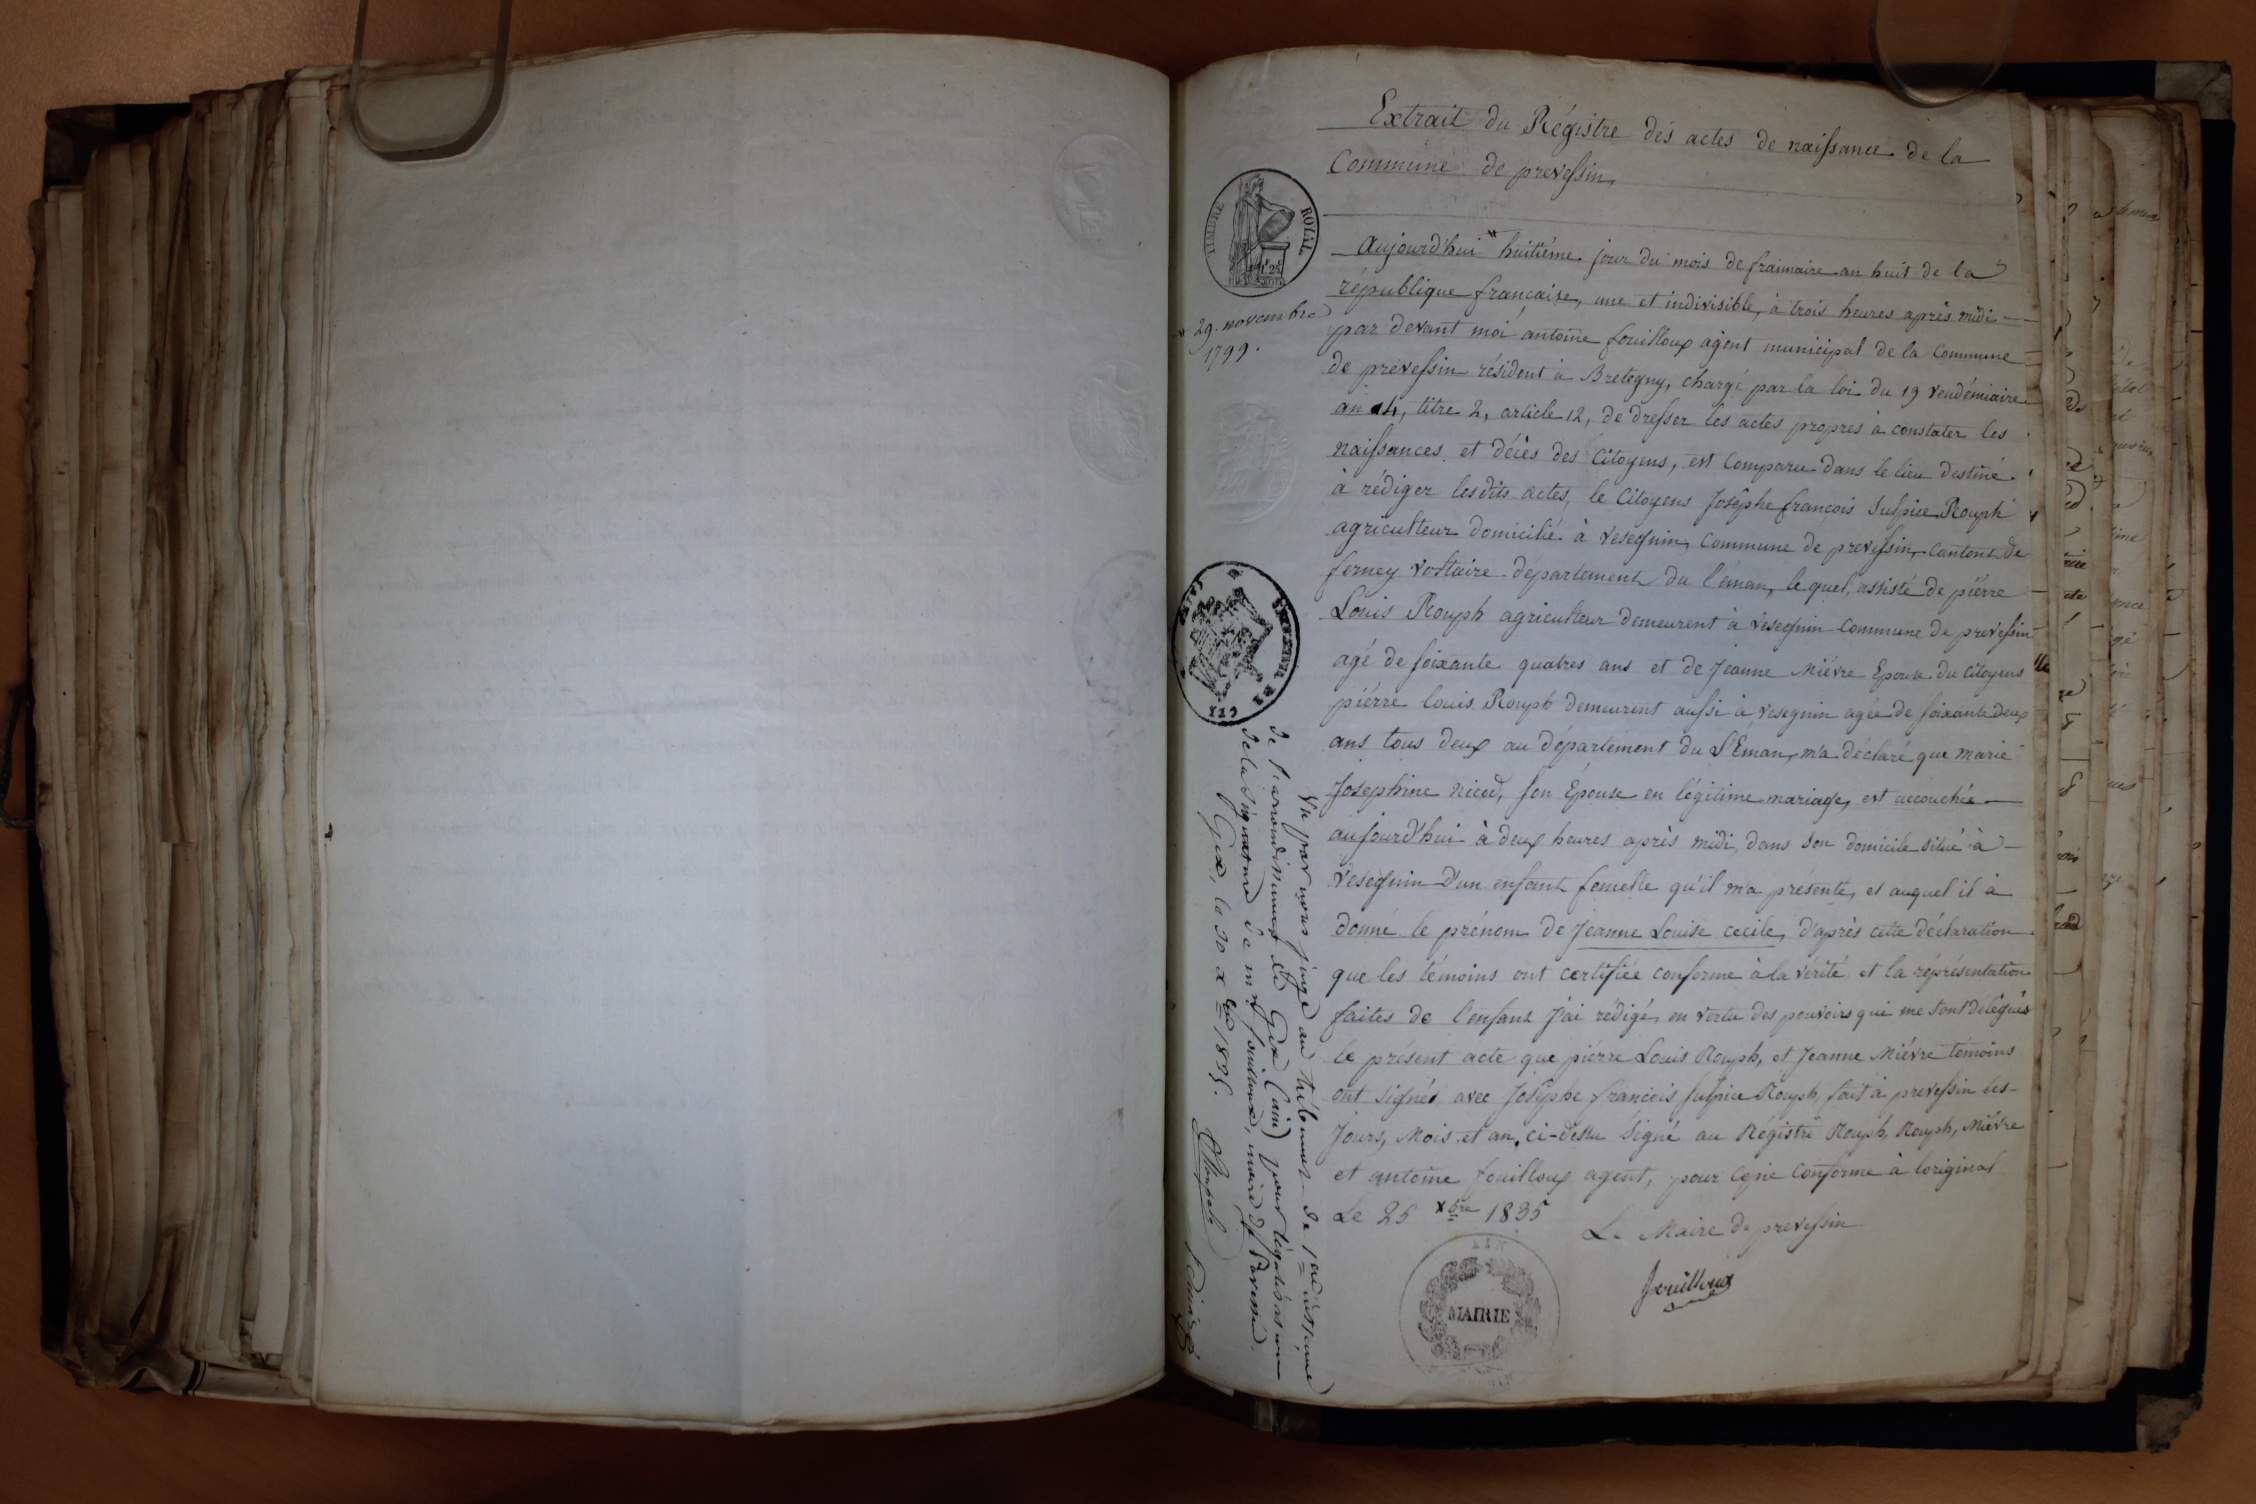 Extrait du Régistre des actes de naissance de la
Commune de prevessin,
TIMBRE ROYAL
* 29. novembre
1799.
Aujourd'hui * huitiéme jour du mois de fraimaire an huit de la
république française, une et indivisible, à trois heures après midi
par devant moi antoine fouilloux agent municipal de la Commune
de prevessin résident à Bretegny, chargé par la loi du 19 vendémiaire
an 4, titre 2, article 12, de dresser les actes propres à constater les
naissances et décès des Citoyens, est Comparu dans le lieu destiné
à rédiger lesdits actes, le Citoyens Josephe françois Sulpice Rouph
agriculteur domicilié à vesegnin, Commune de prevessin, Canton de
ferney voltaire département du léman, lequel, assisté de piérre
Louis Rouph agriculteur demeurent à vesegnin Commune de prevessin
agé de soixante quatres ans et de Jeanne Miévre Epouse du Citoyens
piérre louis Rouph demeurent aussi à vesegnin agée de soixante deux
ans tous deux au département du L'Eman, m'a déclaré que Marie
Josephine nicod, son Épouse en légitime mariage, est accouchée
aujourd'hui à deux heures après midi, dans son domicile situé à
vesegnin d'un enfant femelle qu'il m'a présenté, et auquel il à
donné le prénom de Jeanne Louise cecile, d'après cette déclaration
que les témoins ont certifiée conforme à la vérité et la réprésentation
faites de l'enfant J'ai rédigé, en vertu des pouvoirs qui me sont délégués
le présent acte que piérre Louis Rouph, et Jeanne Miévre témoins
ont signés avec Josephe françois Sulpice Rouph, fait à prevessin les
Jours, Mois et an, ci-dessu signé au Régistre Rouph, Rouph, Miévre
et antoine fouilloux agent, pour copie Conforme à l'original
Le 25 Xbre 1835
Le Maire de prevessin
fouilloux
MAIRIE
Vu par nous juge au tribunal de 1ere instance
de l'arrondissement de Gex (ain) pour légalisation
de la signature de mr fouilloux, maire de Prevessin.
Gex, le 30 Xbre 1835.